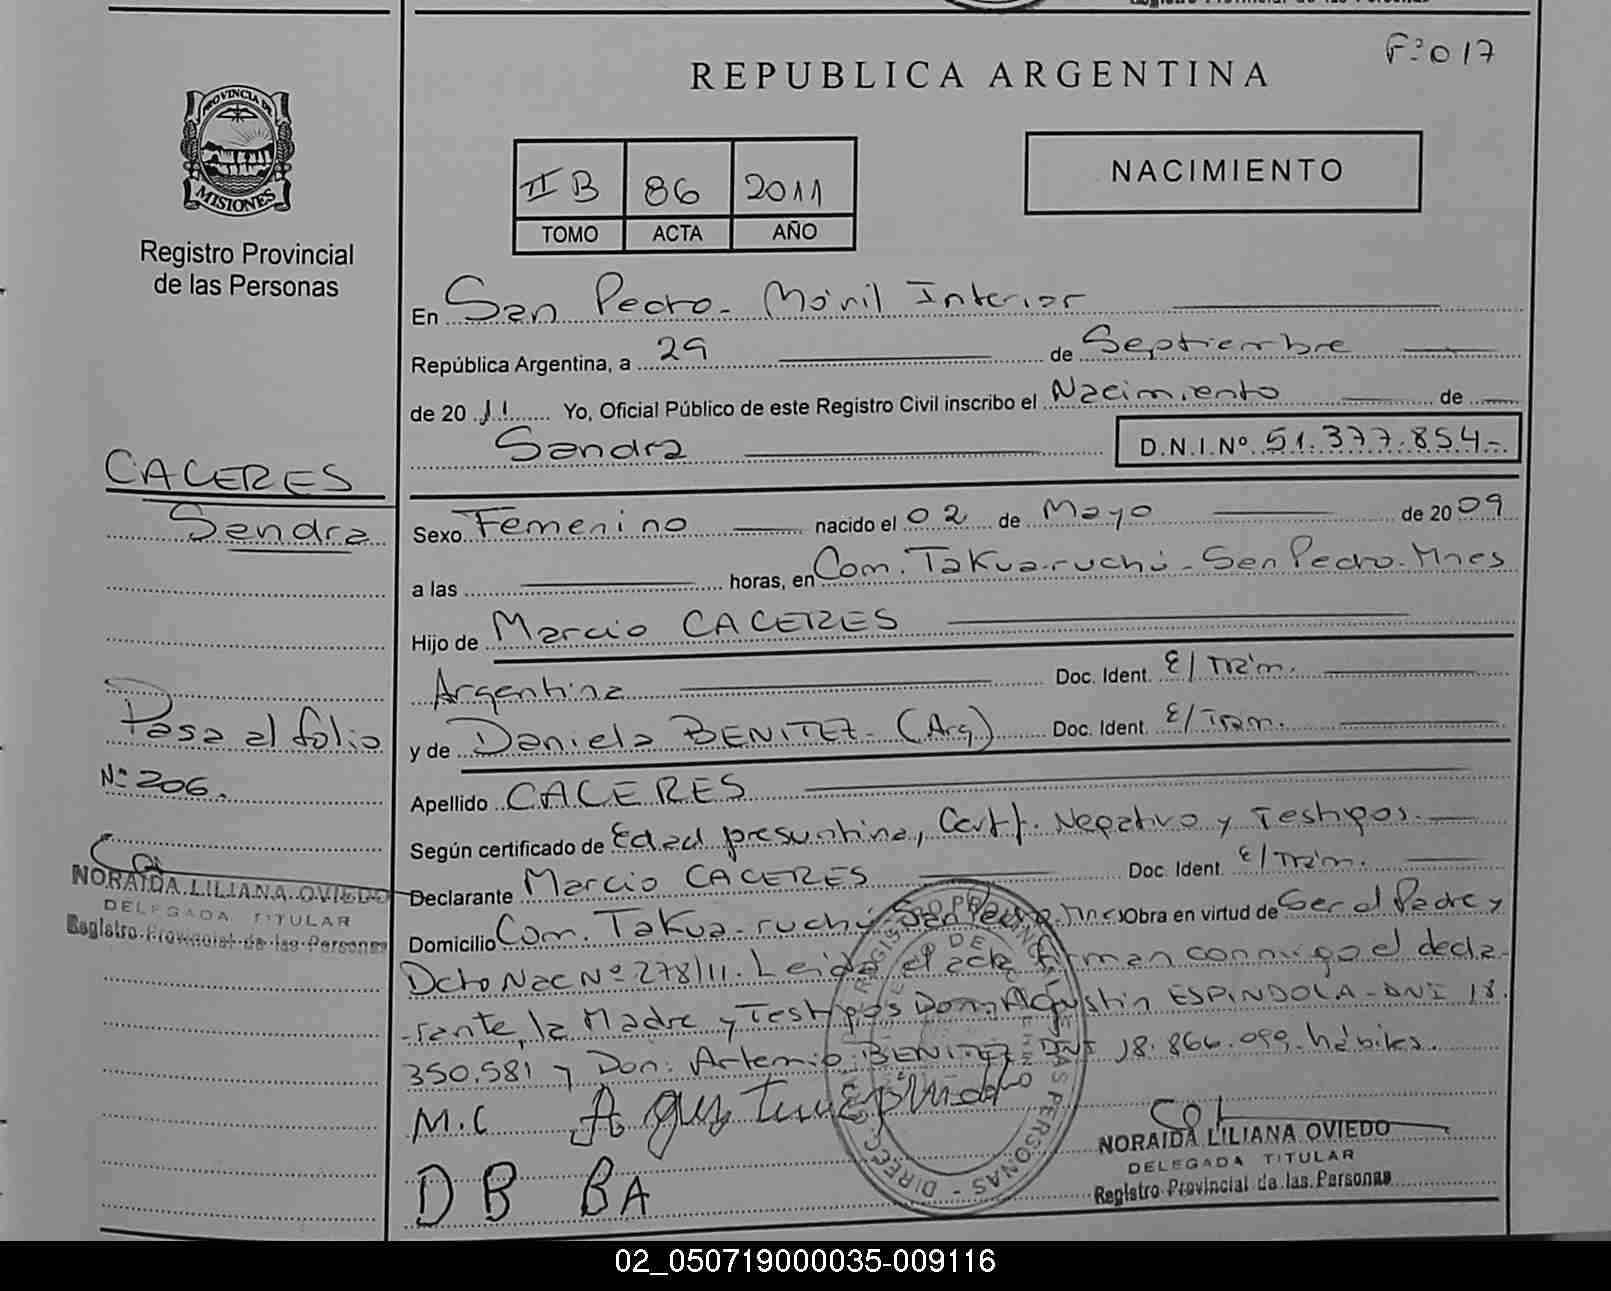 F:017
REPUBLICA ARGENTINA
PROVINCIA DE
MISIONES
Registro Provincial
de las Personas
II B 86 2011
TOMO ACTA AÑO
NACIMIENTO
En San Pedro - Móvil Interior
República Argentina, a 29 de Septiembre
de 20 11 Yo, Oficial Público de este Registro Civil inscribo el Nacimiento de
Sandra D.N.I.Nº 51.377.854.-
CACERES
Sandra
Sexo Femenino nacido el 02 de Mayo de 20 09
a las horas, en Com. Takua-ruchú - San Pedro - Mnes
Hijo de Marcio CACERES
Argentina Doc. Ident. E/Trám.
y de Daniela BENITEZ - (Arg) Doc. Ident. E/Trám.
Pasa al folio
Nº 206.
Apellido CACERES
Según certificado de Edad presuntina, Certf. Negativo y Testigos.
Declarante Marcio CACERES Doc. Ident. E/Trám.
Domicilio Com. Takua-ruchú - San Pedro, Mnes Obra en virtud de Ser el Padre y
Dcto Nac Nº 278/11. Leida el acta firman conmigo el decla-
rante, la Madre y Testigos Don: Agustin ESPINDOLA - DNI 18.
350.581 y Don: Artemio BENITEZ DNI 18.866.099. hábiles.
NORAIDA LILIANA OVIEDO
DELEGADA TITULAR
Registro Provincial de las Personas
M.C Agustin Espindola
D B BA
NORAIDA LILIANA OVIEDO
DELEGADA TITULAR
Registro Provincial de las Personas
02_050719000035-009116